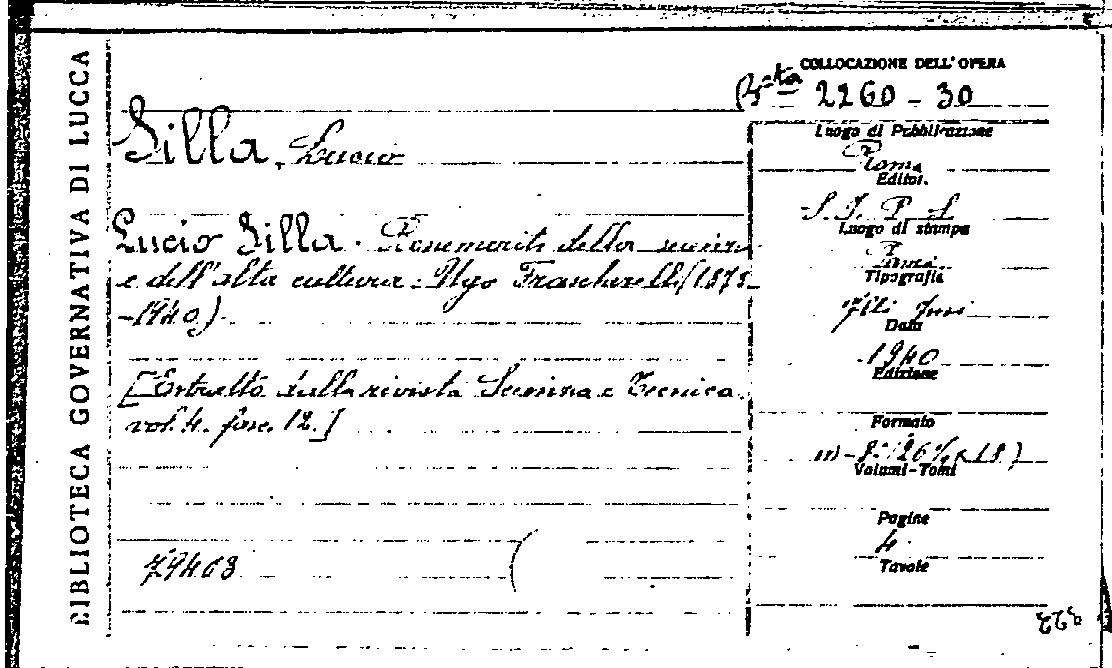 BIBLIOTECA GOVERNATIVA DI LUCCA
COLLOCAZIONE DELL'OPERA
B.sta 2260-30
Silla, Lucio
Lucio Silla. Benemeriti della scienza
e dell'alta cultura. Ugo Frascherelli (1875
-1940).
[Estratto dalla rivista Scienza e Tecnica.
vol. 4. fasc. 12.]
79463
Luogo di Pubblicazione
Roma
Editor.
S. I. P. S
Luogo di stampa
Tipografia
F.lli
Data
1940
Edizione
Formato
in-8° (26½ x 18)
Volumi-Tomi
Pagine
4
Tavole